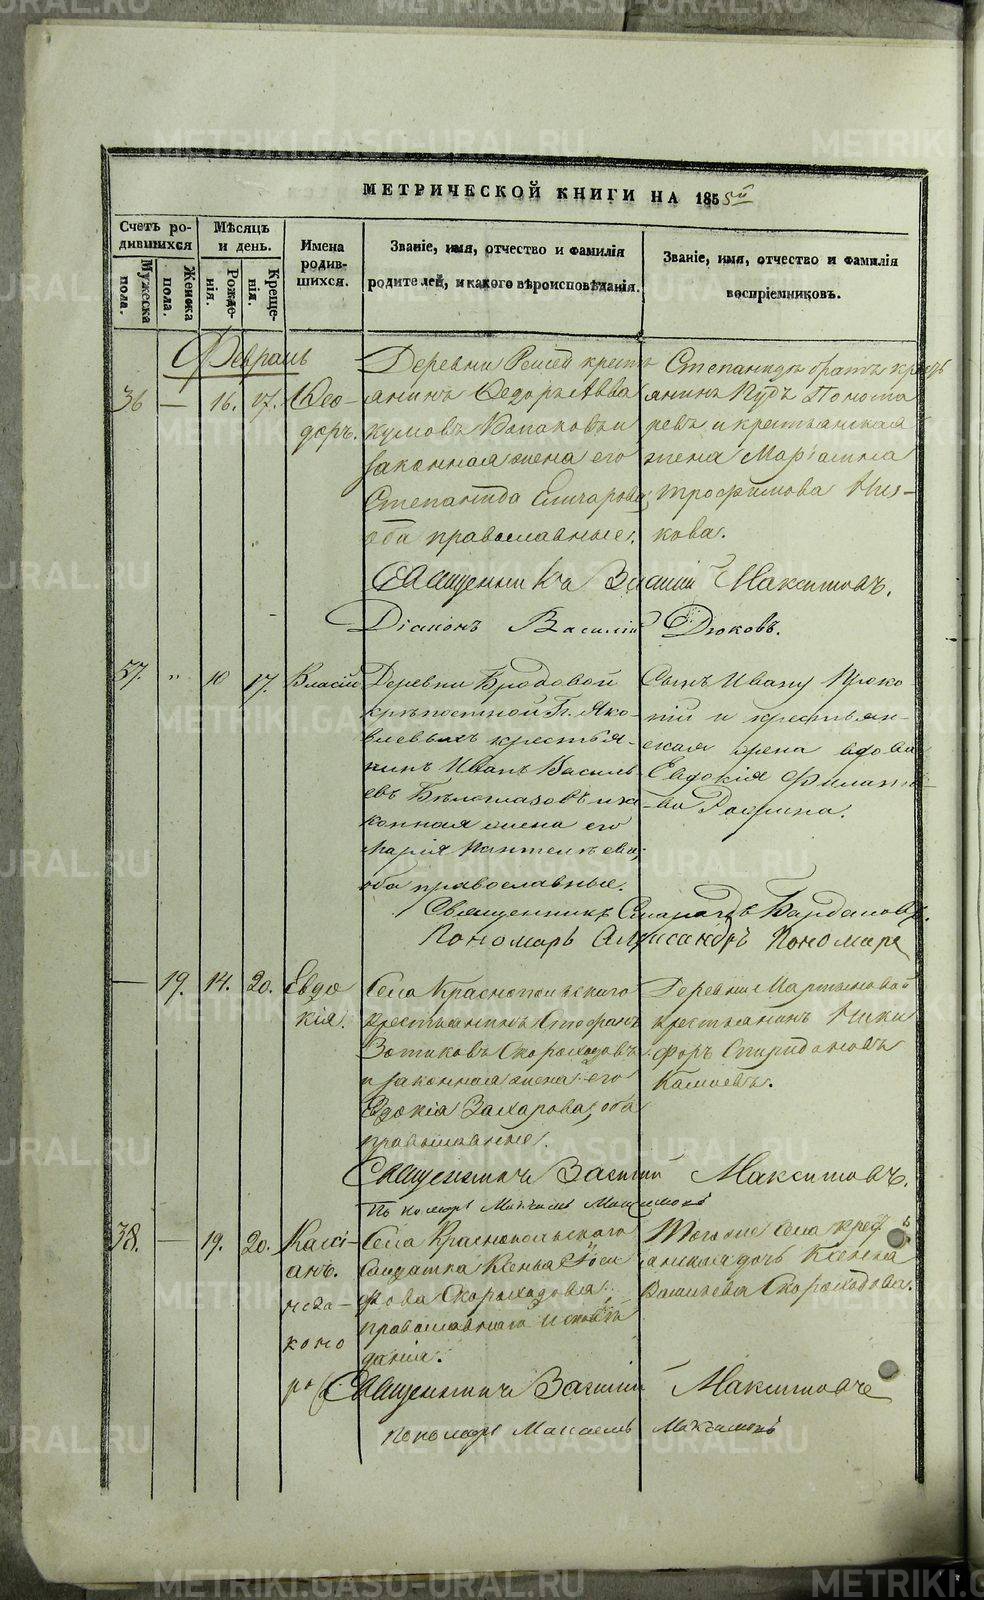 МЕТРИЧЕСКОЙ КНИГИ НА 1855й
Счетъ родившихся
Мужеска пола.
Женска пола.
Мѣсяцъ и день.
Рожденія.
Крещенія.
Имена родившихся.
Званіе, имя, отчество и фамилія
родителей, и какого вѣроисповѣданія.
Званіе, имя, отчество и фамилія
воспріемниковъ.
Февраль
36 — 16. 17. Ѳео-
доръ.
Деревни крестъ
янинъ Ѳедоръ Авва
кумовъ и
законная жена его
Степанида
оба православные.
братъ крестъ
янинъ Пономо
ревъ и крестьянская
жена
Трофимова
кова.
Священникъ Василій Максимовъ.
Діаконъ Василій Дюковъ.
37. " 10 17. Власій
Деревни Бродовой
крѣпостной Г. Яко-
влевыхъ крестья-
нинъ Иванъ Василь
евъ Бѣлоглазовъ и за
конная жена его
Марія Пантелѣева,
оба православные.
Сынъ Ивану Проко
пій и крестьян-
ская жена вдова
Евдокія Филато-
ва
Священникъ
Пономарь Александръ Пономаре
— 19. 14. 20. Евдо
кія.
Села Краснопольскаго
крестьянинъ Стефанъ
Зотиковъ Скороходовъ
и законная жена его
Евдокія Захарова, оба
православные.
Деревни Мартьяновой
крестьянинъ Ники
форъ Спиридоновъ
Священникъ Василій Максимовъ.
38. — 19. 20. Кассі-
анъ.
неза-
коно
Села Краснопольскаго
Солдатка Ксенья
фова Скороходова.
православнаго исповѣ
данія.
Того же села крест
янская дочь Ксенья
Васильева Скороходова.
Священникъ Василій Максимовъ
Пономарь Максимовъ
METRIKI.GASO-URAL.RU